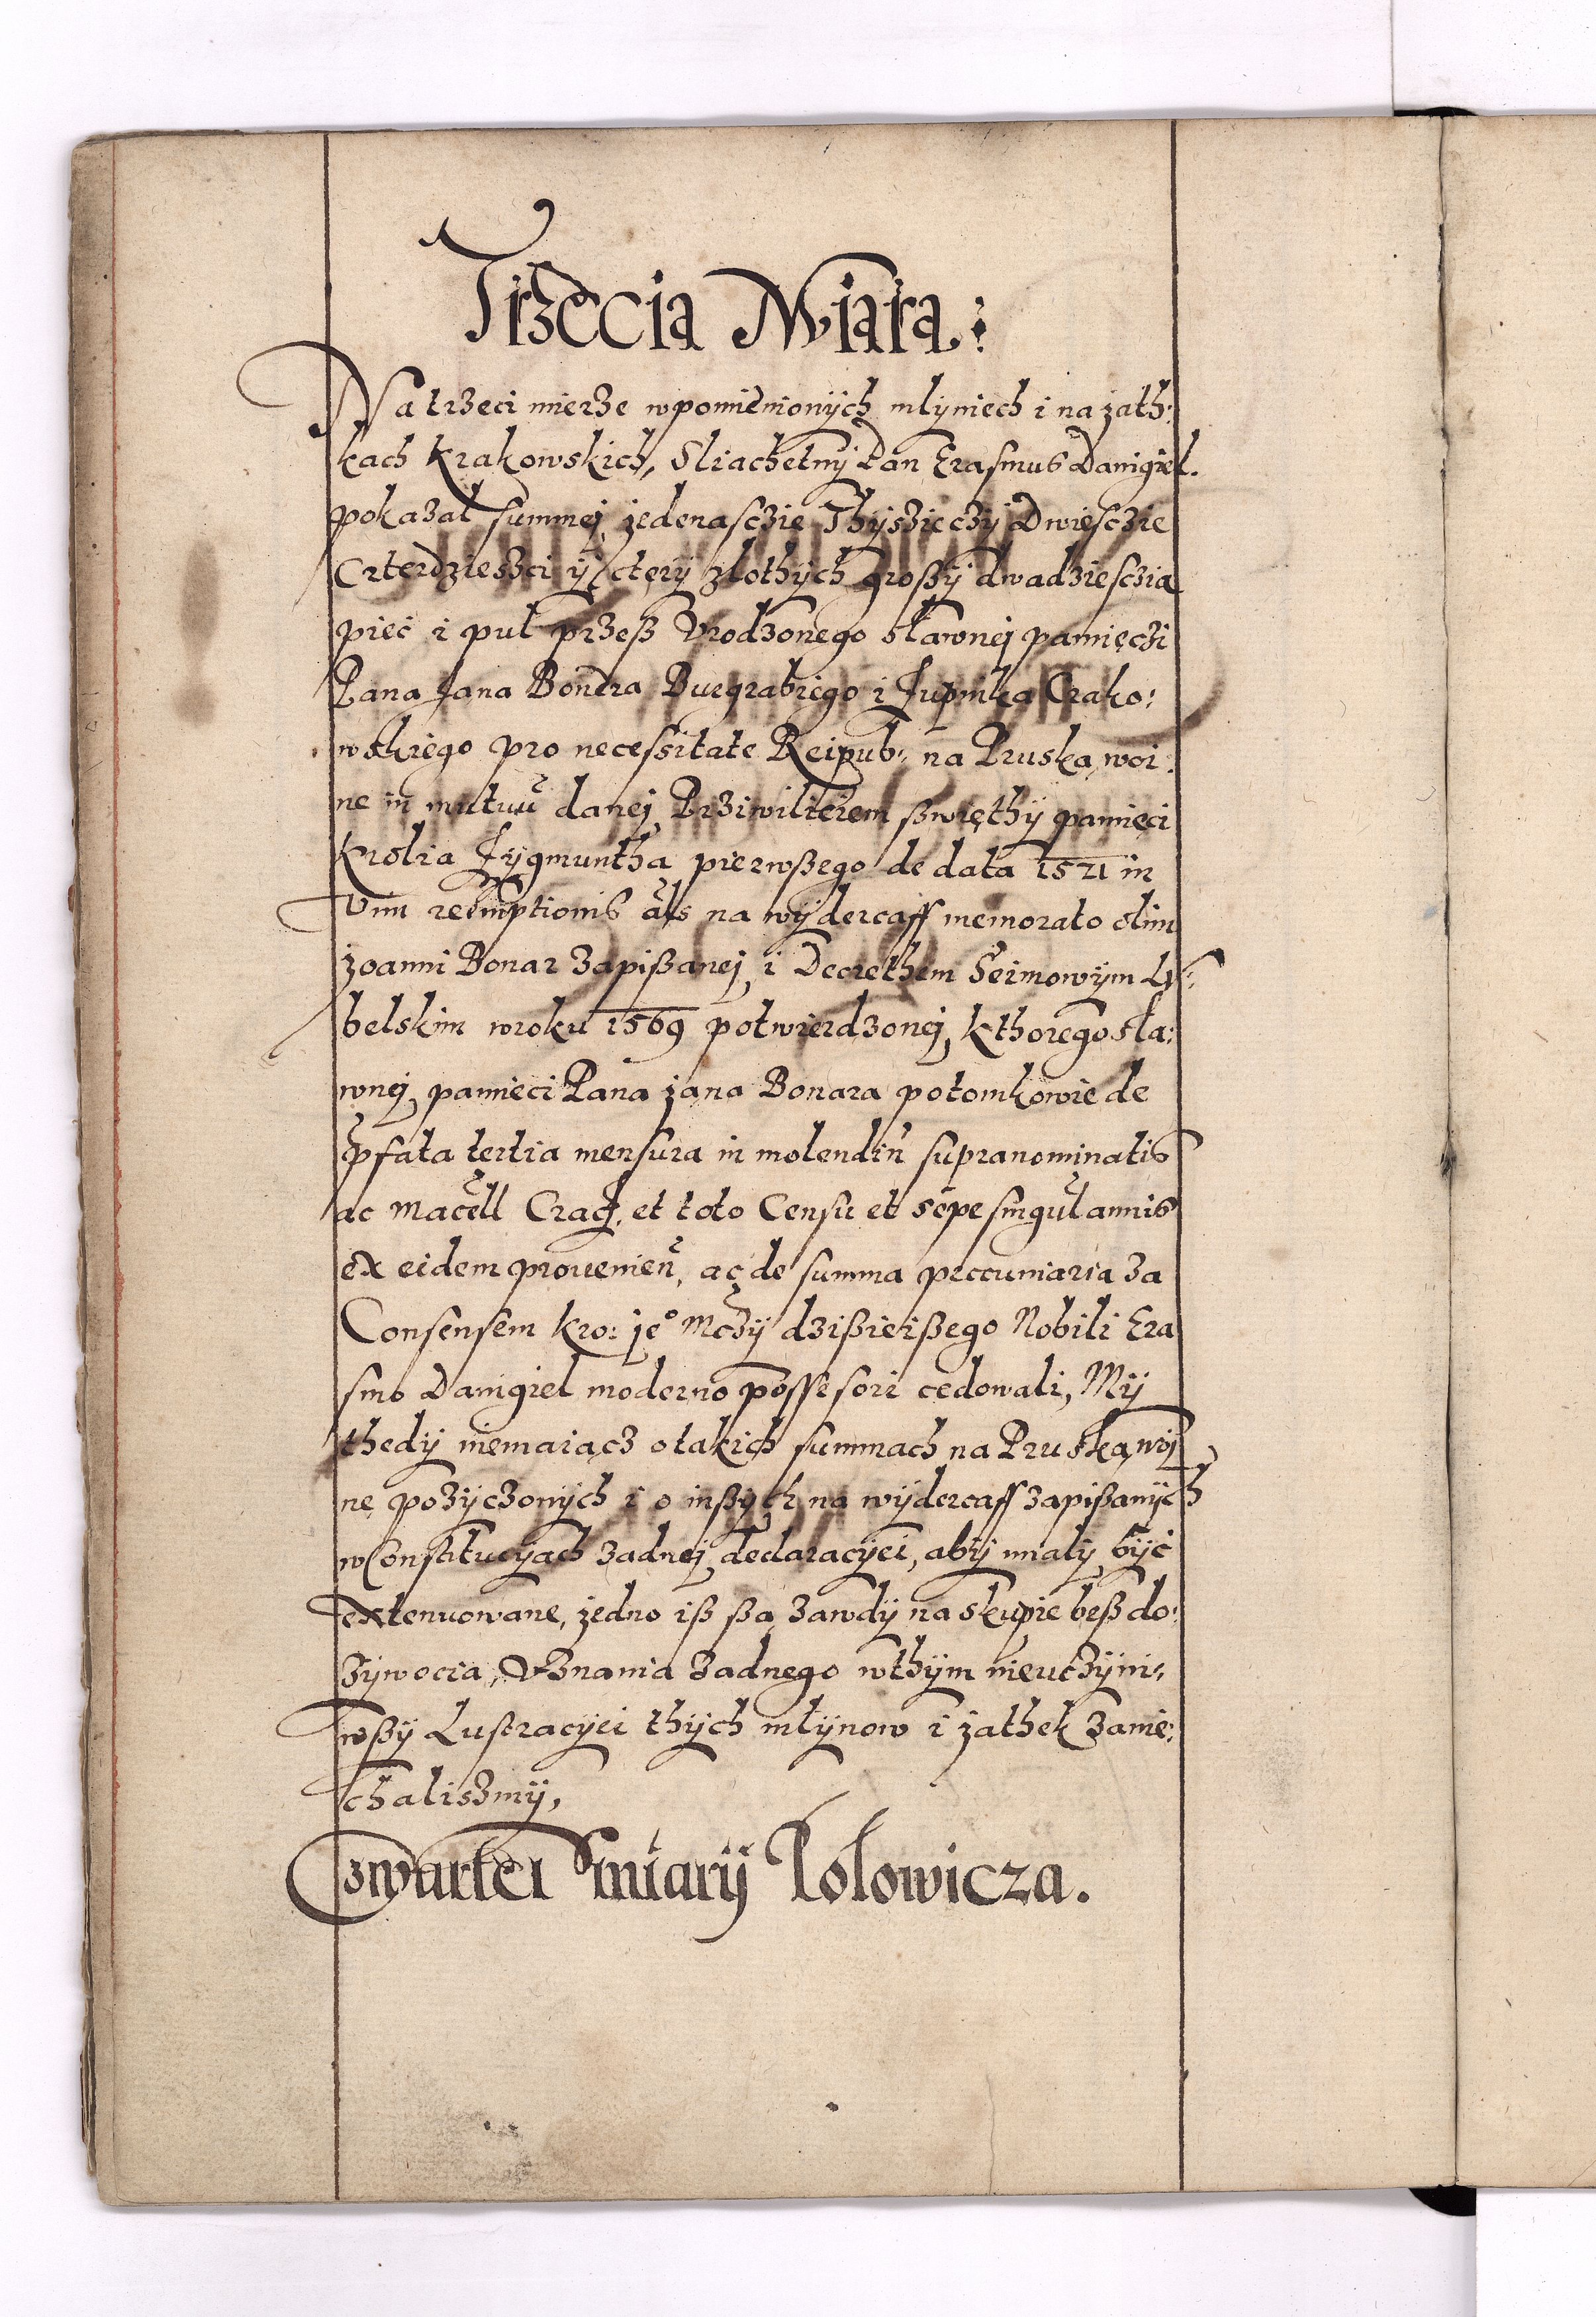 Trzecia Miara:
Na trzeci mierze wpomienionÿch mlÿniech i na jath:
kach Krakowskich, Sliachetnÿ Pan Erasmus Danigiel.
pokazal summej jedenasczie Thÿszięczÿ Dwiesczie
Crterdzieszci ÿ cterÿ zlothÿch großÿ dwadziesczia
pieć i puł przeß Vrodzonego sławnej pamięczi
Pana Jana Bonera Burgrabiego i Jupnika Crako:
wskiego pro necessitate Reipub: na Pruską woi:
ne in mutuu danej Prziwilieiem ßwięthÿ pamięci
Krolia Jÿgmuntha pierwßego de data 1521 in
Vim reemptionis als na wÿdercaff memorato olim
Joanni Bonar zapißanej i Decrethem Seimowÿm Lu:
belskim wroku 1569 potwierdzonej, kthorego sła:
wnej pamieci Pana jana Bonara potomkowie de
pfata tertia mensura in molendin supranominatis
ac macell Crac, et toto Censu et sepe singul annis
ex eidem prouenien, ac de summa peccuniaria za
Consensem Kro: je° Mczÿ dzißieißego Nobili Era
smo Danigiel moderno possesori cedowali, Mÿ
thedÿ niemaiącz otakich summach na Pruską woj
nę pozÿczonÿch i o inßÿch na wÿdercaff zapißanÿch
wConstitucÿach zadnej declaracÿei, abÿ mialÿ bÿć
extenuowane, jedno iß ßą zawdÿ na skupie beß do:
zÿwocia, Vznania zadnego wthÿm nieuczÿni:
wßÿ Lustracÿei thÿch młÿnow i jathek zanie:
chaliszmÿ,
Czwartei miarÿ Polowicza.